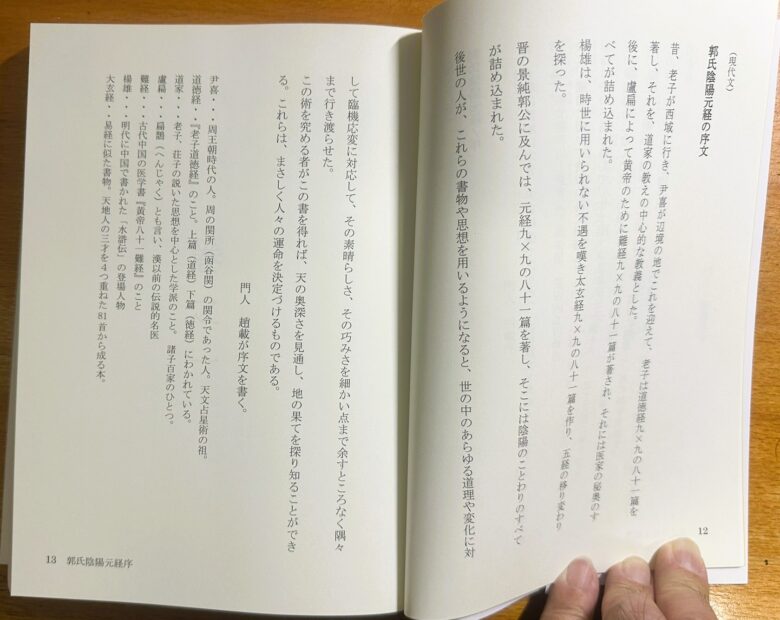 (現代文)
郭氏陰陽元経の序文
昔、老子が西域に行き、尹喜が辺境の地でこれを迎えて、老子は道徳経九×九の八十一篇を
著し、それを、道家の教えの中心的な教義とした。
後に、盧扁によって黄帝のために難経九×九の八十一篇が著され、それには医家の秘奥のす
べてが詰め込まれた。
楊雄は、時世に用いられない不遇を嘆き太玄経九×九の八十一篇を作り、五経の移り変わり
を探った。
晋の景純郭公に及んでは、元経九×九の八十一篇を著し、そこには陰陽のことわりのすべて
が詰め込まれた。
後世の人が、これらの書物や思想を用いるようになると、世の中のあらゆる道理や変化に対
12
して臨機応変に対応して、その素晴らしさ、その巧みさを細かい点まで余すところなく隅々
まで行き渡らせた。
この術を究める者がこの書を得れば、天の奥深さを見通し、地の果てを探り知ることができ
る。これらは、まさしく人々の運命を決定づけるものである。
門人 趙載が序文を書く。
尹喜・・・周王朝時代の人。周の関所(函谷関)の関令であった人。天文占星術の祖。
道徳経・・『老子道徳経』のこと。上篇(道経)下篇(徳経)にわかれている。
道家・・・老子、荘子の説いた思想を中心とした学派のこと。 諸子百家のひとつ。
盧扁・・・扁鵲(へんじゃく)とも言い、漢以前の伝説的名医
難経・・・古代中国の医学書『黄帝八十一難経』のこと
楊雄・・・明代に中国で書かれた「水滸伝」の登場人物
大玄経・・易経に似た書物。天地人の三才を4つ重ねた81首から成る本。
13 郭氏陰陽元経序